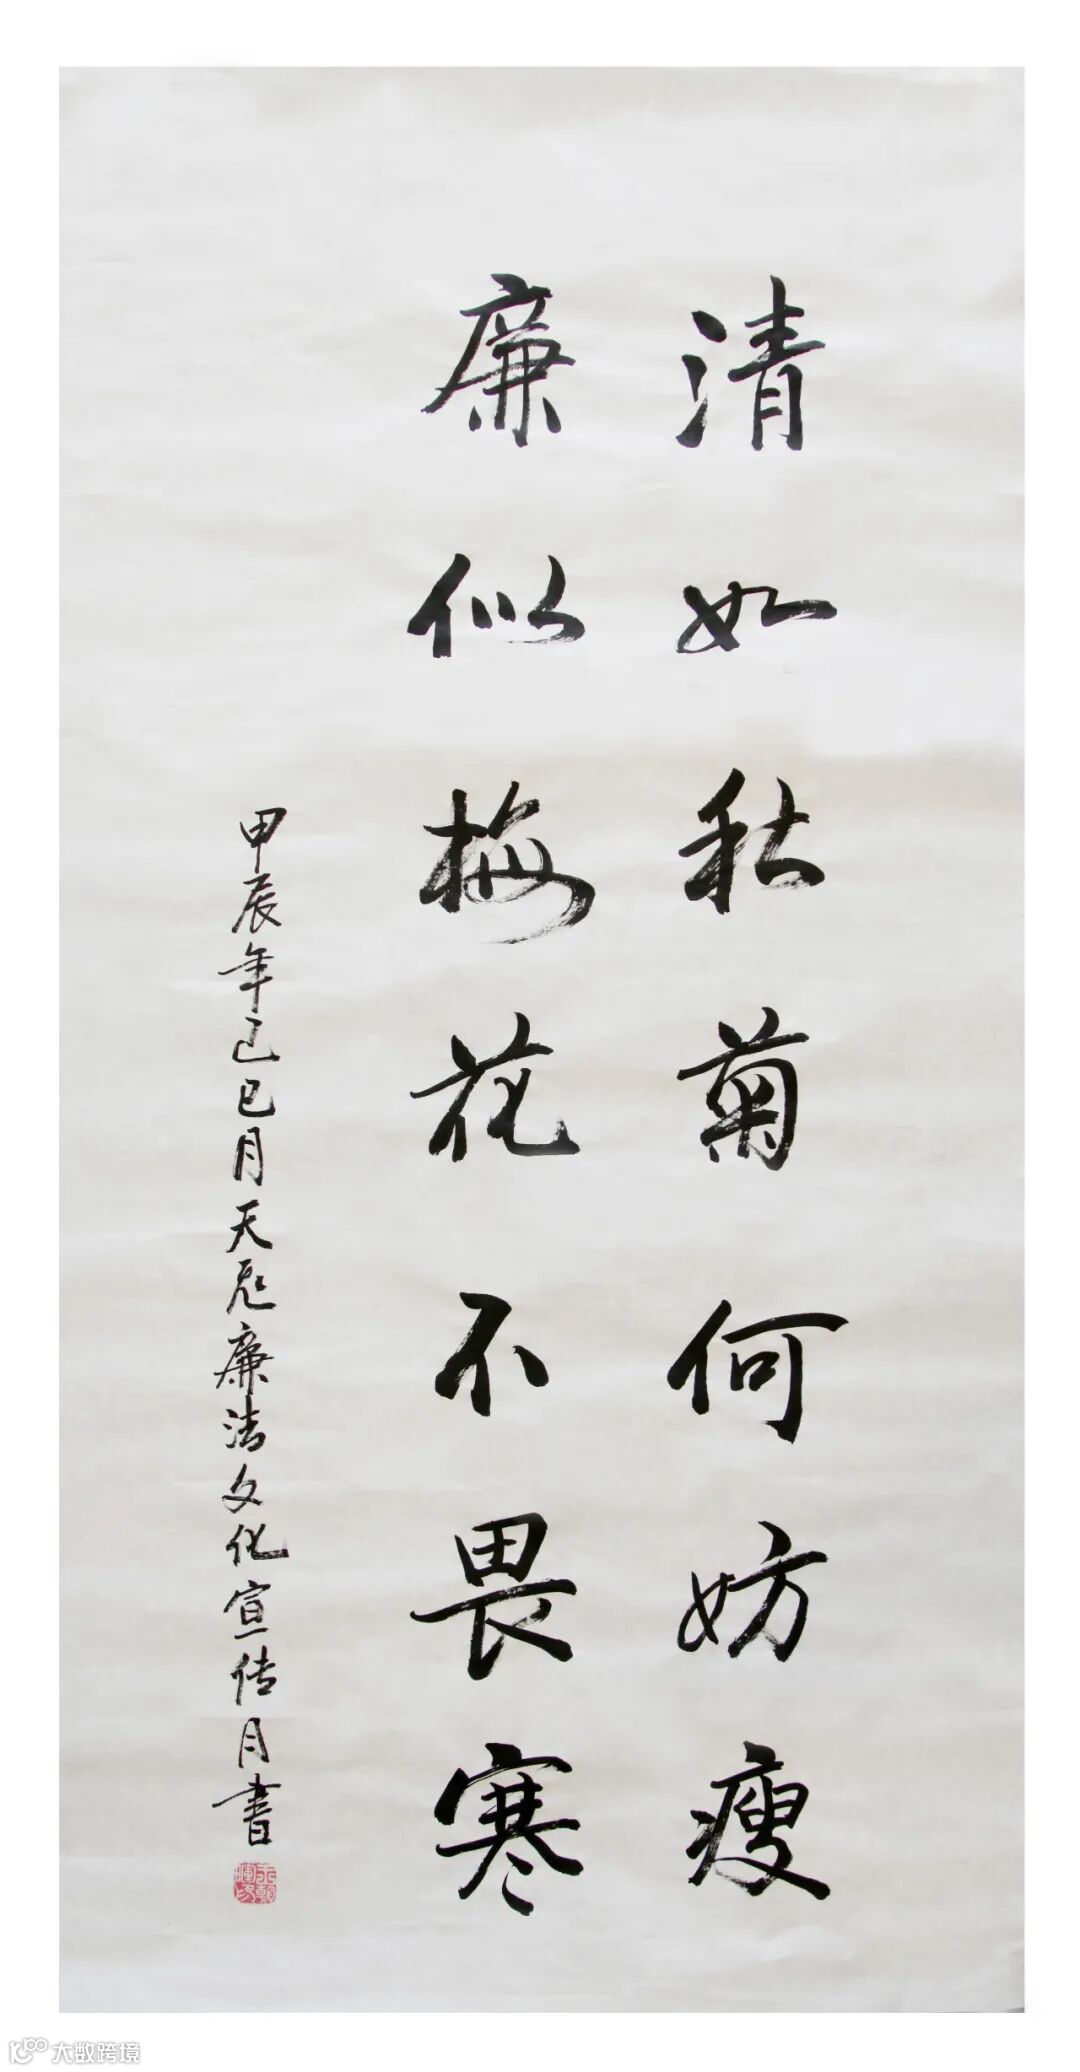 清如秋菊何妨瘦
廉似梅花不畏寒
甲辰年己巳月天元廉洁文化宣传月書
大数跨境